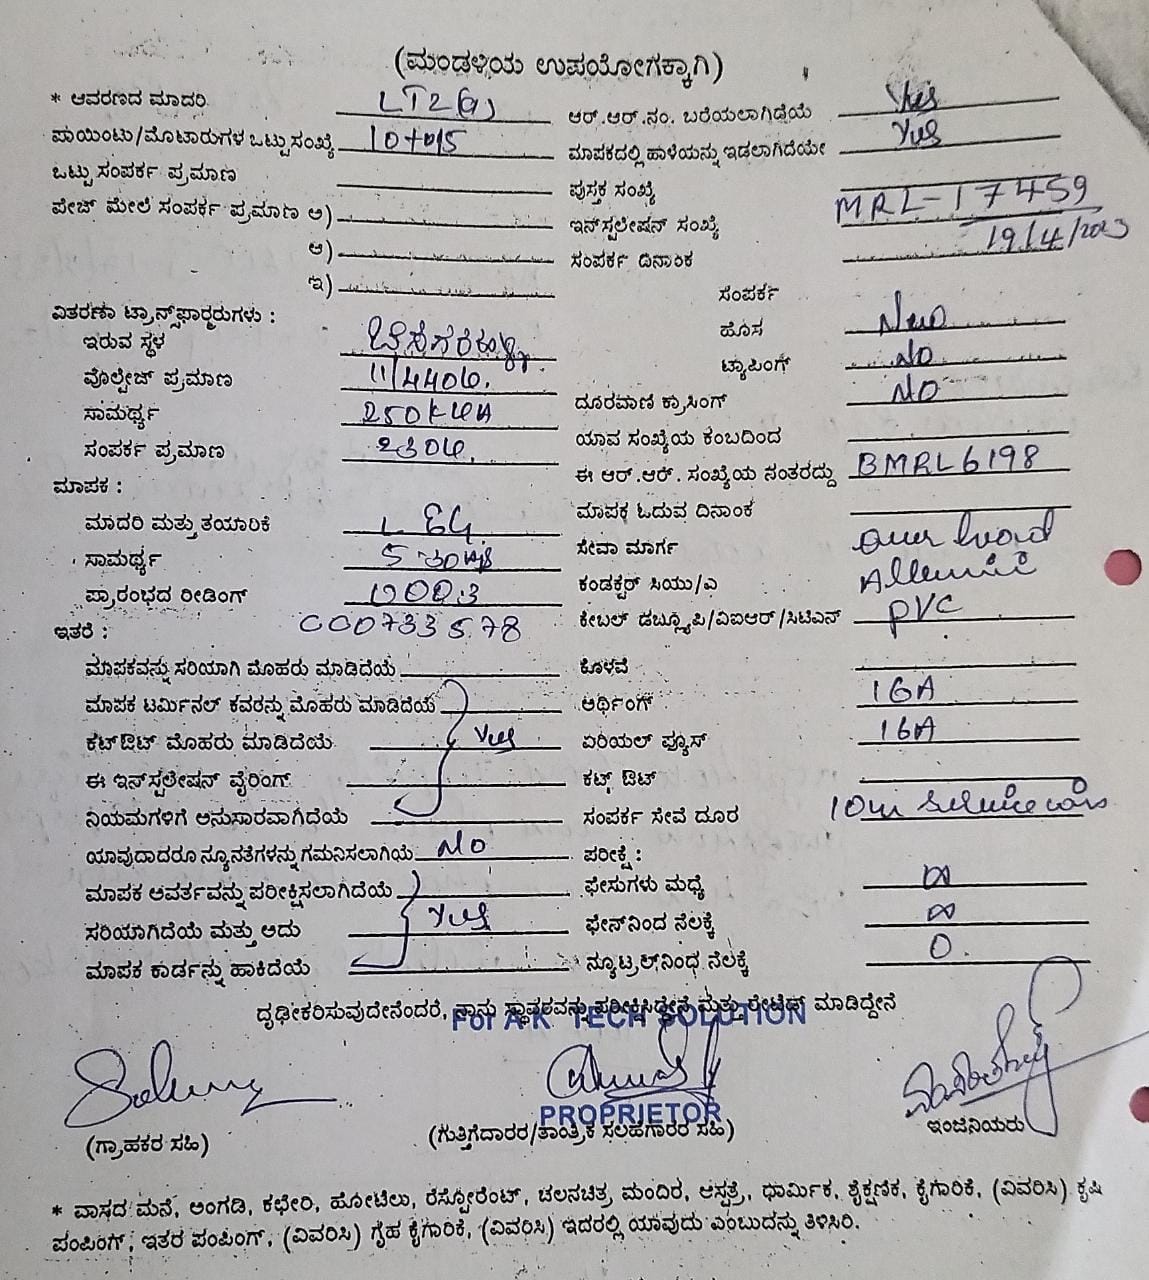 (ಮಂಡಳಿಯ ಉಪಯೋಗಕ್ಕಾಗಿ)
* ಆವರಣದ ಮಾದರಿ LT2(a)
ಪಾಯಿಂಟು/ಮೊಟಾರುಗಳ ಒಟ್ಟು ಸಂಖ್ಯೆ 10+0/5
ಒಟ್ಟು ಸಂಪರ್ಕ ಪ್ರಮಾಣ
ಪೇಜ್ ಮೇಲೆ ಸಂಪರ್ಕ ಪ್ರಮಾಣ ಅ)
ಆ)
ಇ)
ವಿತರಣಾ ಟ್ರಾನ್ಸ್‌ಫಾರ್‍ಮರುಗಳು :
ಇರುವ ಸ್ಥಳ
ವೊಲ್ಟೇಜ್ ಪ್ರಮಾಣ 11/440v.
ಸಾಮರ್ಥ್ಯ 250KVA
ಸಂಪರ್ಕ ಪ್ರಮಾಣ 230v.
ಮಾಪಕ :
ಮಾದರಿ ಮತ್ತು ತಯಾರಿಕೆ L &G
ಸಾಮರ್ಥ್ಯ 5-30A
ಪ್ರಾರಂಭದ ರೀಡಿಂಗ್ 000.3
ಇತರೆ : 000733578
ಮಾಪಕವನ್ನು ಸರಿಯಾಗಿ ಮೊಹರು ಮಾಡಿದೆಯೆ
ಮಾಪಕ ಟರ್ಮಿನಲ್ ಕವರನ್ನು ಮೊಹರು ಮಾಡಿದೆಯೆ
ಕಟ್‌ಔಟ್ ಮೊಹರು ಮಾಡಿದೆಯೆ Yes
ಈ ಇನ್‌ಸ್ಪಲೇಷನ್ ವೈರಿಂಗ್
ನಿಯಮಗಳಿಗೆ ಅನುಸಾರವಾಗಿದೆಯೆ
ಯಾವುದಾದರೂ ನ್ಯೂನತೆಗಳನ್ನು ಗಮನಿಸಲಾಗಿಯೆ No
ಮಾಪಕ ಆವರ್ತವನ್ನು ಪರೀಕ್ಷಿಸಲಾಗಿದೆಯೆ
ಸರಿಯಾಗಿದೆಯೆ ಮತ್ತು ಅದು Yes
ಮಾಪಕ ಕಾರ್ಡನ್ನು ಹಾಕಿದೆಯೆ
ಆರ್.ಆರ್.ನಂ. ಬರೆಯಲಾಗಿದೆಯೆ Yes
ಮಾಪಕದಲ್ಲಿ ಹಾಳೆಯನ್ನು ಇಡಲಾಗಿದೆಯೇ Yes
ಪುಸ್ತಕ ಸಂಖ್ಯೆ
ಇನ್‌ಸ್ಪಲೇಷನ್ ಸಂಖ್ಯೆ MRL-17459
ಸಂಪರ್ಕ ದಿನಾಂಕ 19/4/2023
ಸಂಪರ್ಕ
ಹೊಸ New
ಟ್ಯಾಪಿಂಗ್ No
ದೂರವಾಣಿ ಕ್ರಾಸಿಂಗ್ NO
ಯಾವ ಸಂಖ್ಯೆಯ ಕಂಬದಿಂದ
ಈ ಆರ್.ಆರ್. ಸಂಖ್ಯೆಯ ನಂತರದ್ದು BMRL6198
ಮಾಪಕ ಓದುವ ದಿನಾಂಕ
ಸೇವಾ ಮಾರ್ಗ
ಕಂಡಕ್ಟರ್ ಸಿಯು/ಎ
ಕೇಬಲ್ ಡಬ್ಲ್ಯೂಪಿ/ವಿಐಆರ್/ಸಿಟಿಎಸ್ PVC
ಕೊಳವೆ
ಆರ್ಥಿಂಗ್ 16A
ಏರಿಯಲ್ ಫ್ಯೂಸ್ 16A
ಕಟ್ಔಟ್
ಸಂಪರ್ಕ ಸೇವೆ ದೂರ 10m Service wire
ಪರೀಕ್ಷೆ :
ಫೇಸುಗಳು ಮಧ್ಯೆ ∞
ಫೇಸ್‌ನಿಂದ ನೆಲಕ್ಕೆ ∞
ನ್ಯೂಟ್ರಲ್‌ನಿಂಧ ನೆಲಕ್ಕೆ 0.
ದೃಢೀಕರಿಸುವುದೇನೆಂದರೆ, ನಾನು ಸ್ಥಾವರವನ್ನು ಪರೀಕ್ಷಿಸಿದ್ದೇನೆ ಮತ್ತು ರೇಟೆಡ್ ಮಾಡಿದ್ದೇನೆ
For A K TECH SOLUTION
PROPRIETOR
(ಗ್ರಾಹಕರ ಸಹಿ) (ಗುತ್ತಿಗೆದಾರರ/ತಾಂತ್ರಿಕ ಸಲಹೆಗಾರರ ಸಹಿ) ಇಂಜಿನಿಯರು
* ವಾಸದ ಮನೆ, ಅಂಗಡಿ, ಕಛೇರಿ, ಹೋಟೆಲು, ರೆಸ್ಟೋರೆಂಟ್, ಚಲನಚಿತ್ರ ಮಂದಿರ, ಆಸ್ಪತ್ರೆ, ಧಾರ್ಮಿಕ, ಶೈಕ್ಷಣಿಕ, ಕೈಗಾರಿಕೆ, (ವಿವರಿಸಿ) ಕೃಷಿ
ಪಂಪಿಂಗ್, ಇತರ ಪಂಪಿಂಗ್, (ವಿವರಿಸಿ) ಗೃಹ ಕೈಗಾರಿಕೆ, (ವಿವರಿಸಿ) ಇದರಲ್ಲಿ ಯಾವುದು ಎಂಬುದನ್ನು ತಿಳಿಸಿರಿ.